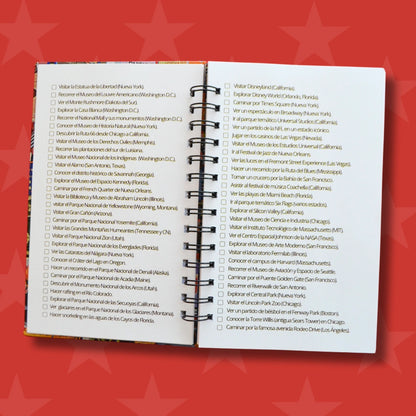 Visitar la Estatua de la Libertad (Nueva York).
Recorrer el Museo del Louvre Americano (Washington D.C.).
Ver el Monte Rushmore (Dakota del Sur).
Explorar la Casa Blanca (Washington D.C.).
Recorrer el National Mall y sus monumentos (Washington D.C.).
Conocer el Museo de Historia Natural (Nueva York).
Descubrir la Ruta 66 desde Chicago a California.
Visitar el Museo de los Derechos Civiles (Memphis).
Recorrer las plantaciones del sur de Luisiana.
Visitar el Museo Nacional de los Indígenas (Washington D.C.).
Visitar el Alamo (San Antonio, Texas).
Conocer el distrito histórico de Savannah (Georgia).
Explorar el Museo del Espacio Kennedy (Florida).
Caminar por el French Quarter de Nueva Orleans.
Visitar la Biblioteca y Museo de Abraham Lincoln (Illinois).
Visitar el Parque Nacional de Yellowstone (Wyoming, Montana).
Visitar el Gran Cañón (Arizona).
Caminar por el Parque Nacional Yosemite (California).
Visitar las Grandes Montañas Humeantes (Tennessee y CN).
Visitar el Parque Nacional Zion (Utah).
Explorar el Parque Nacional de los Everglades (Florida).
Ver las Cataratas del Niágara (Nueva York).
Conocer el Cráter del Lago en Oregon.
Hacer un recorrido en el Parque Nacional de Denali (Alaska).
Caminar por el Parque Nacional de Acadia (Maine).
Descubrir el Monumento Nacional de los Arcos (Utah).
Hacer rafting en el Río Colorado.
Explorar el Parque Nacional de las Secuoyas (California).
Ver glaciares en el Parque Nacional de los Glaciares (Montana).
Hacer snorkeling en las aguas de los Cayos de Florida.
Visitar Disneyland (California).
Explorar Disney World (Orlando, Florida).
Caminar por Times Square (Nueva York).
Ver un espectáculo en Broadway (Nueva York).
Ir al parque temático Universal Studios (California).
Ver un partido de la NFL en un estadio icónico.
Jugar en los casinos de Las Vegas (Nevada).
Visitar el Museo de los Estudios Universal (California).
Ir al Festival de Jazz de Nueva Orleans.
Ver las luces en el Fremont Street Experience (Las Vegas).
Hacer un recorrido por la Ruta del Blues (Mississippi).
Tomar un crucero por la Bahía de San Francisco.
Asistir al festival de música Coachella (California).
Ver las playas de Miami Beach (Florida).
Ir al parque temático Six Flags (varios estados).
Explorar el Silicon Valley (California).
Visitar el Museo de Ciencia e Industria (Chicago).
Visitar el Instituto Tecnológico de Massachusetts (MIT).
Ver el Centro Espacial Johnson de la NASA (Texas).
Explorar el Museo de Arte Moderno (San Francisco).
Visitar el laboratorio Fermilab (Illinois).
Conocer el campus de Harvard (Massachusetts).
Recorrer el Museo de Aviación y Espacio de Seattle.
Caminar por el Puente Golden Gate (San Francisco).
Recorrer el Riverwalk de San Antonio.
Explorar el Central Park (Nueva York).
Visitar el Lincoln Park Zoo (Chicago).
Ver un partido de béisbol en el Fenway Park (Boston).
Conocer la Torre Willis (antigua Sears Tower) en Chicago.
Caminar por la famosa avenida Rodeo Drive (Los Ángeles).